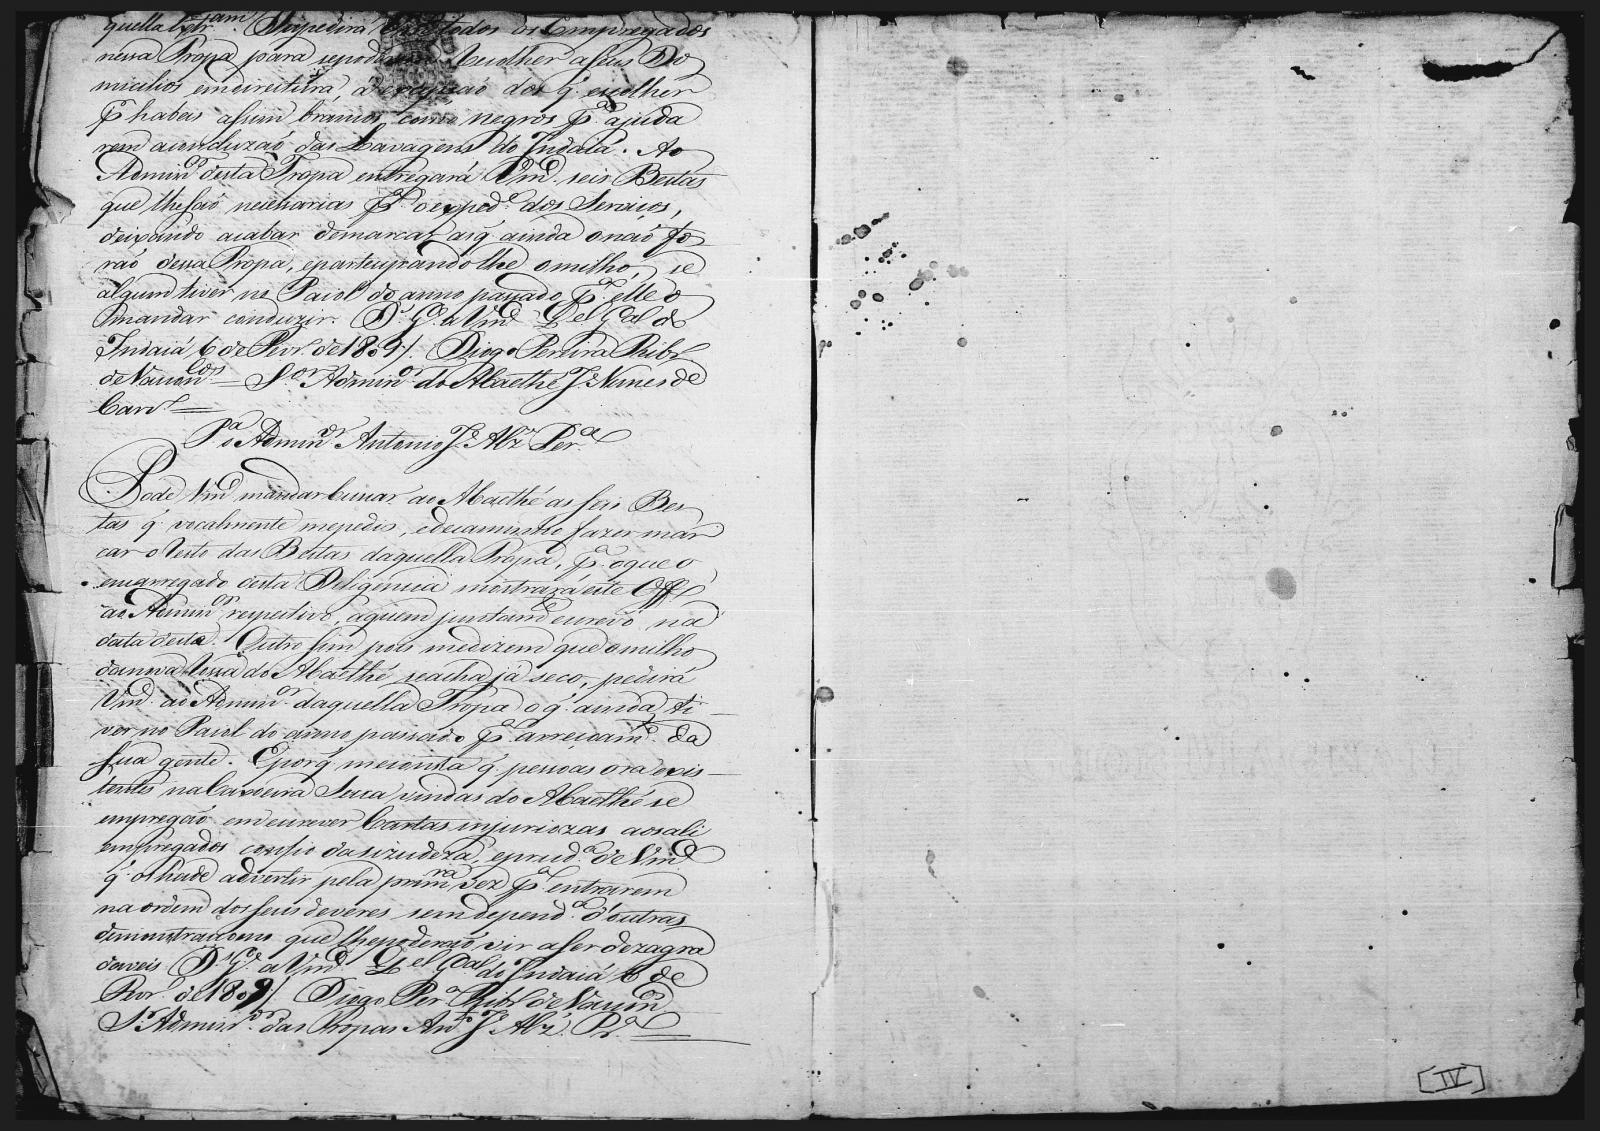 quella Extr.am Despedirá todos os Empregados
nessa Tropa para se poderem recolher a seus Do
micilios em direitura, á excepção dos q. escolher
p.a habeis assim brancos, como negros p.a ajuda
rem a conduzão das Lavagens do Indaiá. Ao
Admin.or desta Tropa entregará Vm.ce seis Bestas
que lhe são necessarias p.a o exped.e dos Servicos,
deixando acabar de marcar as q. ainda o não fo
rão dessa Tropa, e participando lhe o milho, se
algum tiver no Paiol do anno passado p.a elle o
mandar conduzir. D.s G.e a Vm.ce Q.el G.al do
Indaiá 6 de Fevr.o de 1809 //. Diogo Pereira Ribr.o
de Vascon.los = S.or Admin.or do Abaethé J.e Nunes de
Carv.o =
P.a o Admin.or Antonio J.e Alz' Per.a
Pode Vm.ce mandar buscar ao Abaethé as seis Bes
tas q. vocalmente me pedio, e de caminho fazer mar
car o resto das Bestas daquella Tropa, p.a o que o
encarregado desta Deligencia mostrará este Off.o
ao Admin.or respectivo, aquem juntam.e escrevo na
data desta. Outro sim pois me dizem que o milho
da nova Rossa do Abaethé se acha já seco, pedirá
Vm.ce ao Admin.or daquella Tropa o q. ainda ti
ver no Paiol do anno passado p.a arreicam.to da
sua gente. E porq. me consta q. pessoas ora exis
tentes na Caxoeira Seca vindas do Abaethé se
empregão em escrever Cartas injuriozas aos ali
empregados confio da sizudeza, e prud.a de Vm.ce
q. os hade advertir pela prim.ra vez p.a entrarem
na ordem dos seus deveres sem depend.a d'outras
demonstracoens que lhe poderão vir a ser dezagra
daveis D.s G.e a Vm.ce Q.el G.al do Indaiá 6 de
Fevr.o de 1809 //. Diogo Per.a Ribr.o de Vascon.los
S.r Admin.or das Tropas Ant.o J.e Alz'. Pr.a =
[IV]